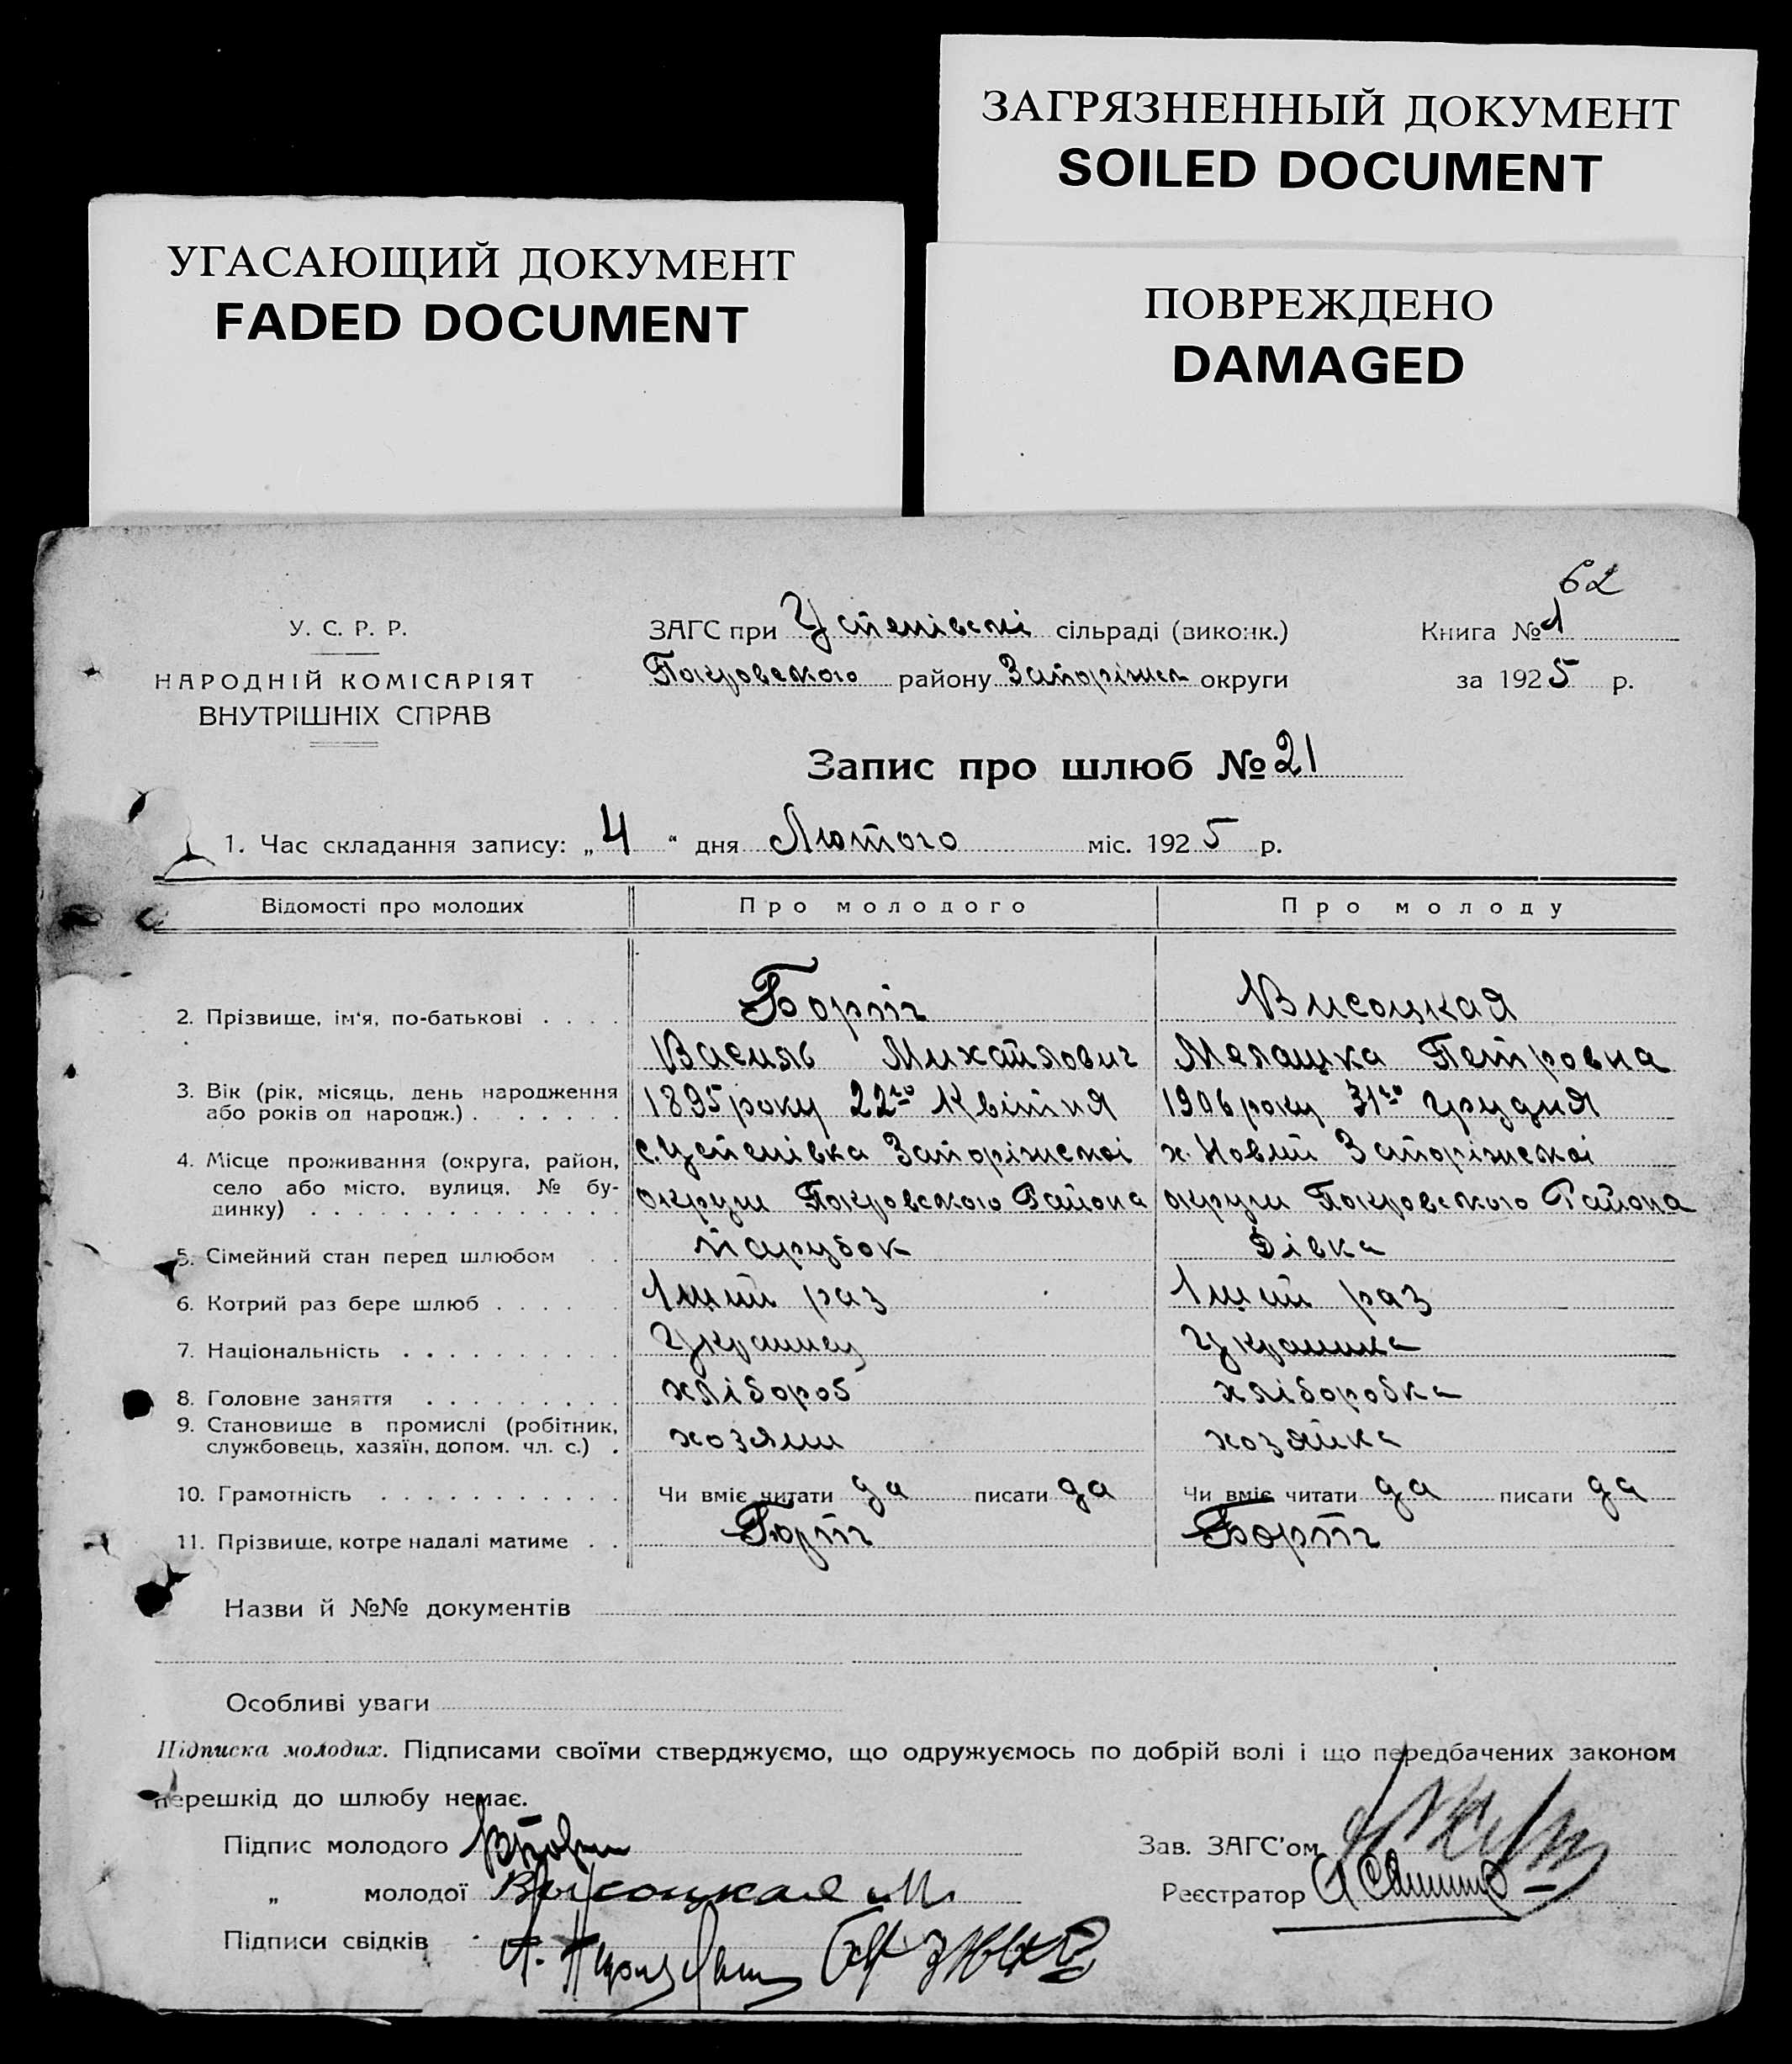 ЗАГРЯЗНЕННЫЙ ДОКУМЕНТ
SOILED DOCUMENT
УГАСАЮЩИЙ ДОКУМЕНТ
FADED DOCUMENT
ПОВРЕЖДЕНО
DAMAGED
62
У. С. Р. Р.
НАРОДНІЙ КОМІСАРІЯТ
ВНУТРІШНІХ СПРАВ
ЗАГС при Успенівскі сільраді (виконк.)
Покровского району Запоріжск округи
Книга № 1
за 1925 р.
Запис про шлюб № 21
1. Час складання запису: „4“ дня Лютого міс. 1925 р.
Відомості про молодих Про молодого Про молоду
2. Прізвище, ім'я, по-батькові . . . . Борт Висоцкая
Василь Михайлович Мелашка Петровна
3. Вік (рік, місяць, день народження або років од народж.) . . . . . . 1895 року 22го Квітня 1906 року 31го Грудня
4. Місце проживання (округа, район, село або місто, вулиця, № будинку) . . . . . . . . . . . . . .
с. Успенівка Запоріжскоі х. Новий Запоріжскоі
округи Покровского Района округи Покровского Района
5. Сімейний стан перед шлюбом . . Парубок Дівка
6. Котрий раз бере шлюб . . . . . 1ший раз 1ший раз
7. Національність . . . . . . . . . . Украинец Украинка
8. Головне заняття . . . . . . . . . хлібороб хліборобка
9. Становище в промислі (робітник, службовець, хазяїн, допом. чл. с.) . хозяин хозяйка
10. Грамотність . . . . . . . . . . . Чи вміє читати да писати да Чи вміє читати да писати да
11. Прізвище, котре надалі матиме . . Борт Борт
Назви й №№ документів
Особливі уваги
Підписка молодих. Підписами своїми стверджуємо, що одружуємось по добрій волі і що передбачених законом
перешкід до шлюбу немає.
Підпис молодого
Зав. ЗАГС'ом
„ молодої Высоцкая М.
Реєстратор
Підписи свідків